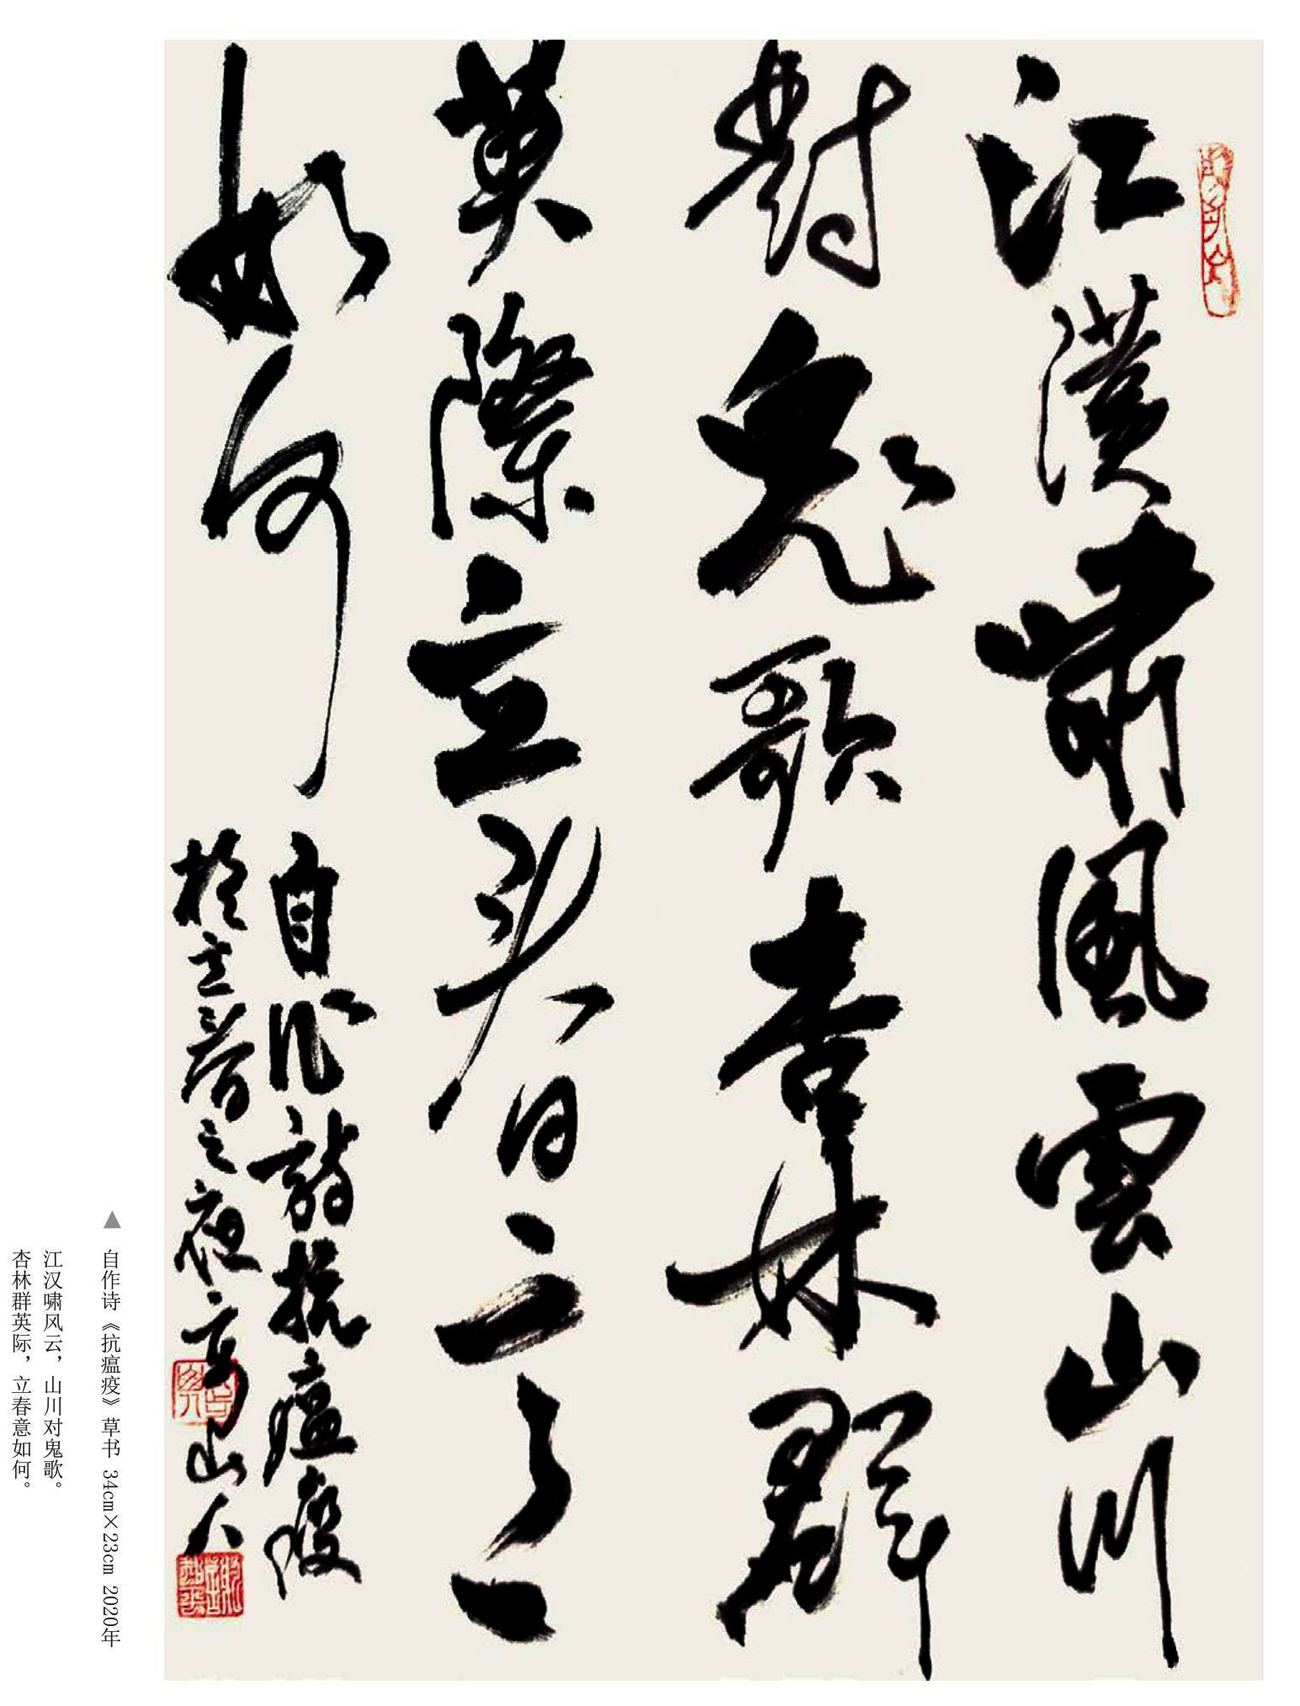 江漢嘯風雲山川
對鬼歌杏林群
英際立春日意
如何
自作詩抗瘟疫
於立春之夜高山人
▲ 自作诗《抗瘟疫》草书 34cm×23cm 2020年
江汉啸风云，山川对鬼歌。
杏林群英际，立春意如何。